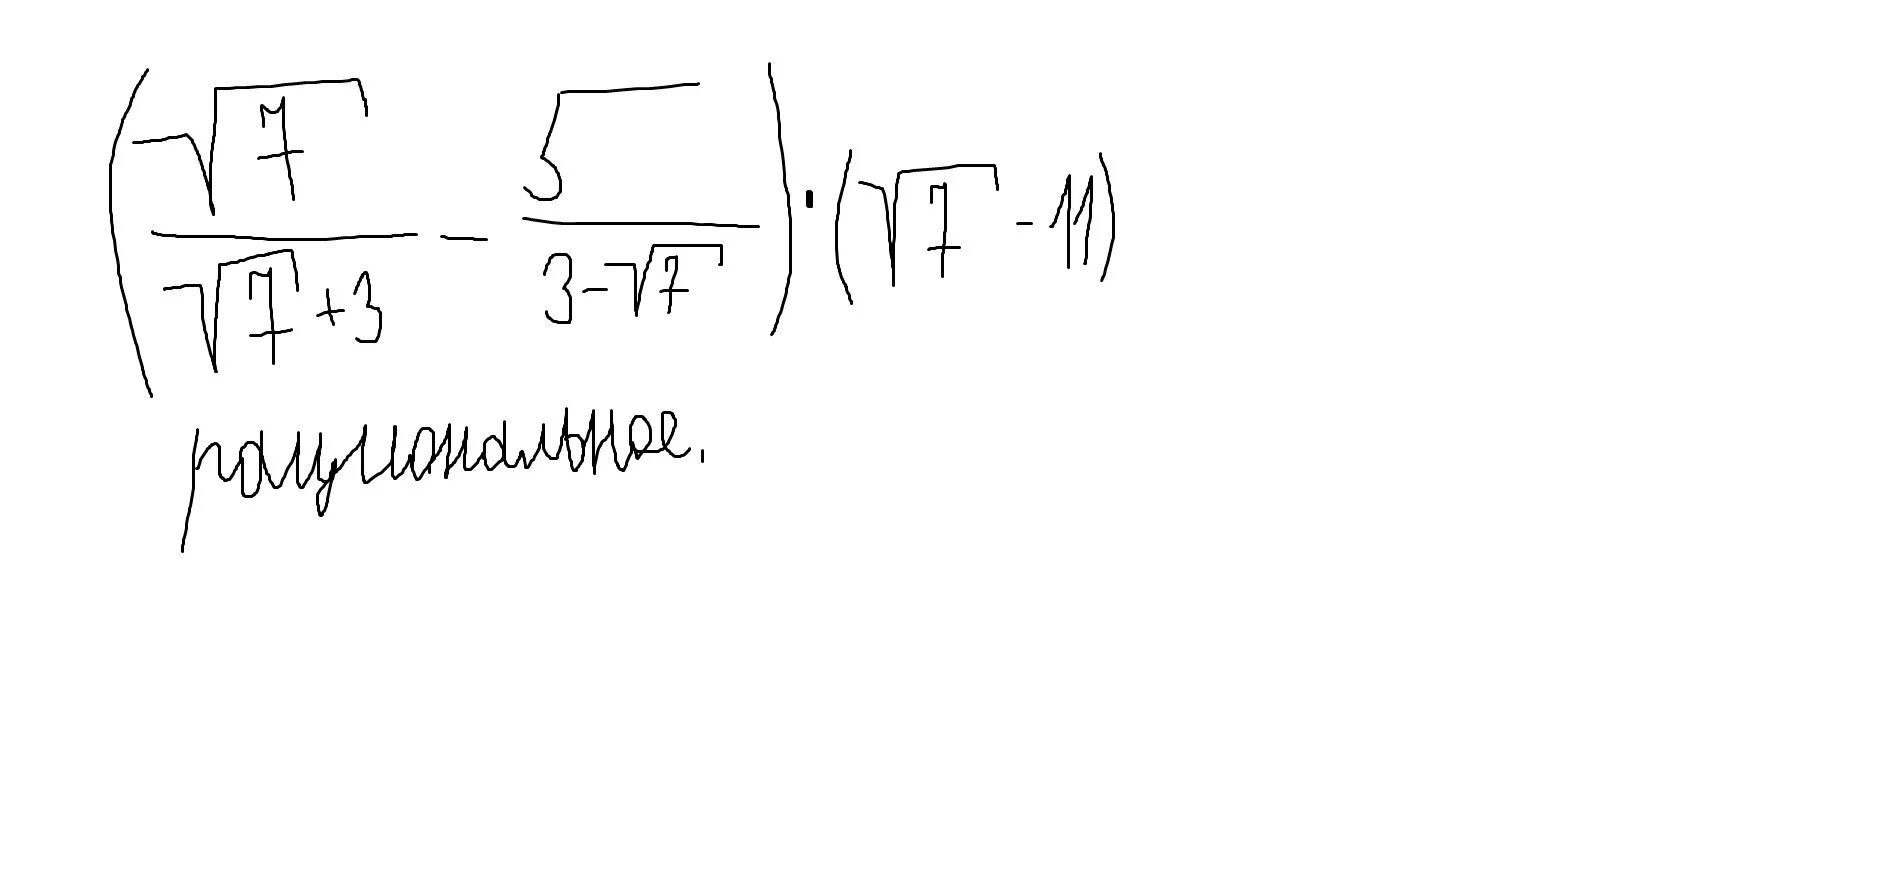 (√7/(√7+3) - 5/(3-√7)) · (√7 - 11)
рациональное.